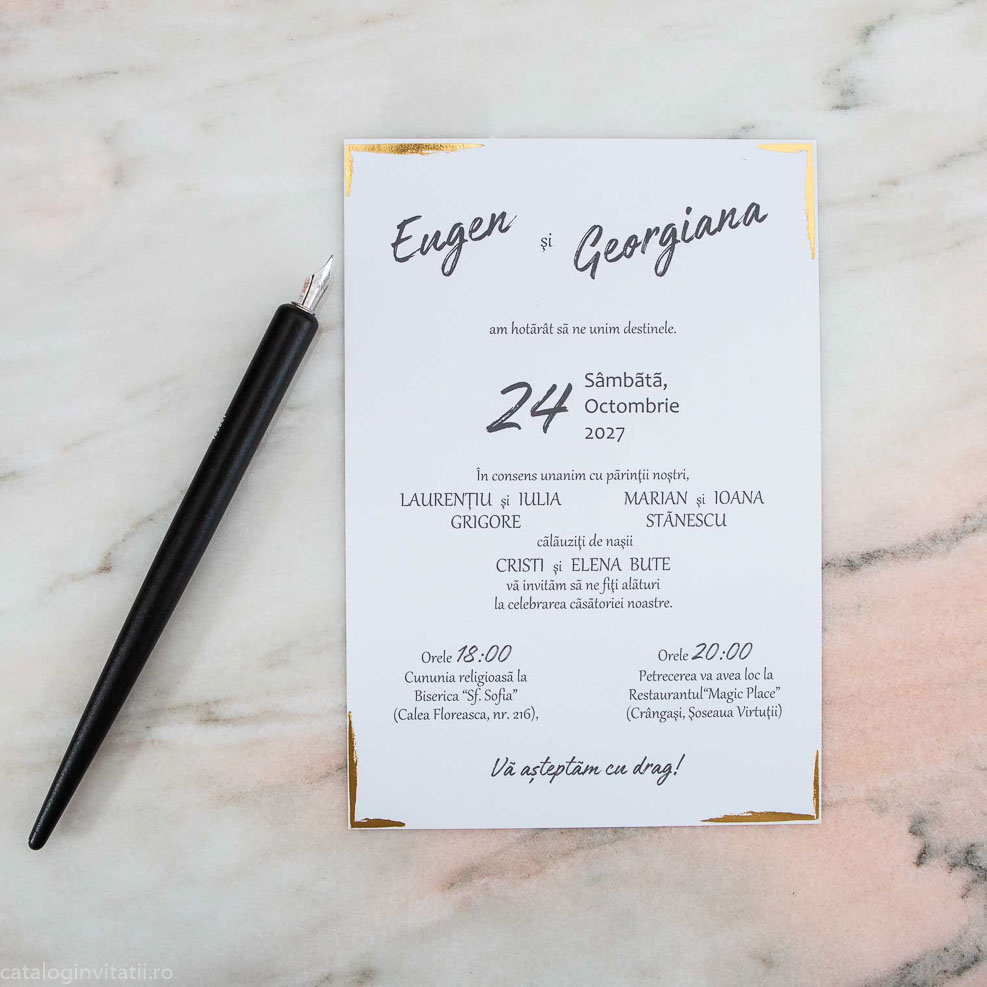 Eugen și Georgiana
am hotãrât sã ne unim destinele.
24 Sâmbãtã,
Octombrie
2027
În consens unanim cu pãrinții noștri,
LAURENȚIU și IULIA
GRIGORE
MARIAN și IOANA
STÃNESCU
cãlãuziți de nașii
CRISTI și ELENA BUTE
vã invitãm sã ne fiți alãturi
la celebrarea cãsãtoriei noastre.
Orele 18:00
Cununia religioasã la
Biserica “Sf. Sofia”
(Calea Floreasca, nr. 216),
Orele 20:00
Petrecerea va avea loc la
Restaurantul“Magic Place”
(Crângași, Șoseaua Virtuții)
Vã așteptãm cu drag!
cataloginvitatii.ro